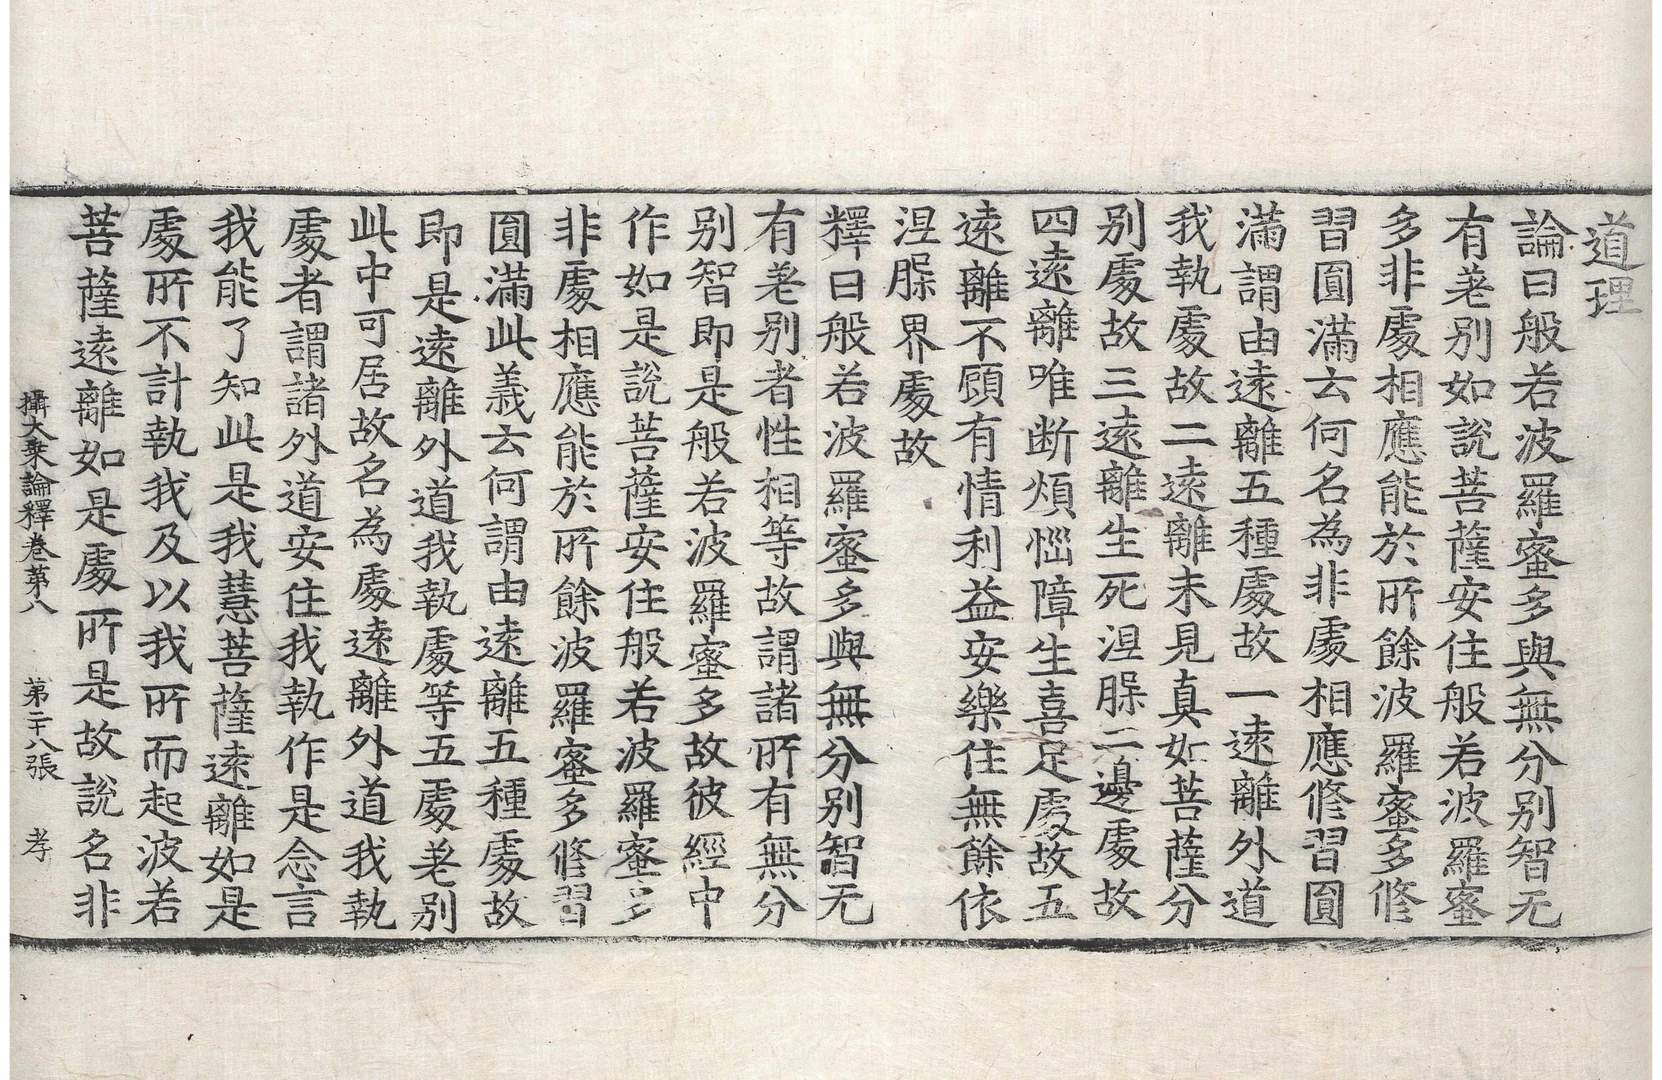 道理
論曰般若波羅蜜多與無分別智无
有差別如說菩薩安住般若波羅蜜
多非處相應能於所餘波羅蜜多修
習圓滿云何名為非處相應修習圓
滿謂由遠離五種處故一遠離外道
我執處故二遠離未見真如菩薩分
別處故三遠離生死涅槃二邊處故
四遠離唯断煩惱障生喜足處故五
遠離不顧有情利益安樂住無餘依
涅槃界處故
釋曰般若波羅蜜多與無分別智无
有差別者性相等故謂諸所有無分
別智即是般若波羅蜜多故彼經中
作如是說菩薩安住般若波羅蜜多
非處相應能於所餘波羅蜜多修習
圓滿此義云何謂由遠離五種處故
即是遠離外道我執處等五處差別
此中可居故名為處遠離外道我執
處者謂諸外道安住我執作是念言
我能了知此是我慧菩薩遠離如是
處所不計執我及以我所而起波若
菩薩遠離如是處所是故說名非
攝大乘論釋卷第八　第二十八張　孝